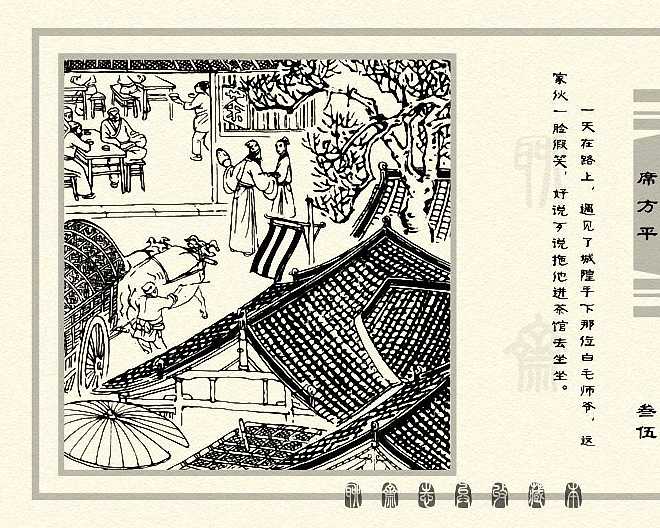 一天在路上，遇见了城隍手下那位白毛师爷，这
家伙一脸假笑，好说歹说拖他进茶馆去坐坐。
席方平
叁伍
聊斋志异收藏本